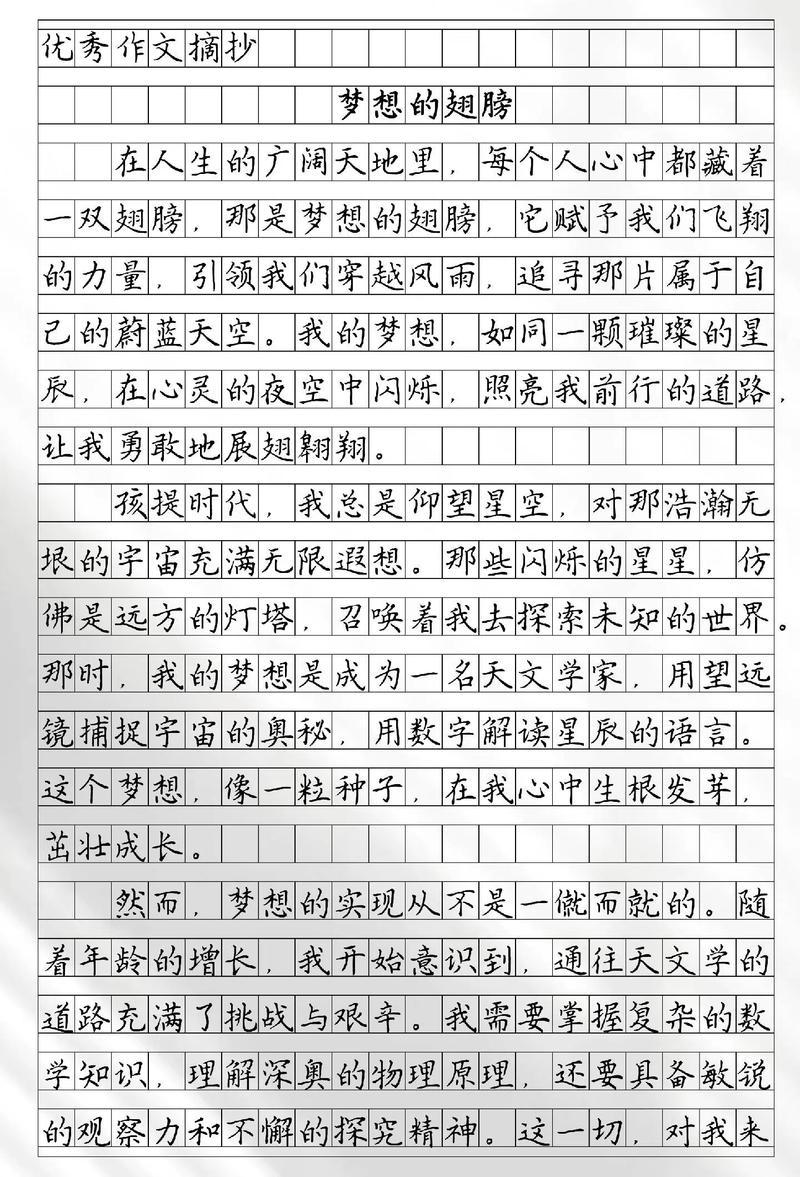 优秀作文摘抄
梦想的翅膀
在人生的广阔天地里，每个人心中都藏着
一双翅膀，那是梦想的翅膀，它赋予我们飞翔
的力量，引领我们穿越风雨，追寻那片属于自
己的蔚蓝天空。我的梦想，如同一颗璀璨的星
辰，在心灵的夜空中闪烁，照亮我前行的道路，
让我勇敢地展翅翱翔。
孩提时代，我总是仰望星空，对那浩瀚无
垠的宇宙充满无限遐想。那些闪烁的星星，仿
佛是远方的灯塔，召唤着我去探索未知的世界。
那时，我的梦想是成为一名天文学家，用望远
镜捕捉宇宙的奥秘，用数字解读星辰的语言。
这个梦想，像一粒种子，在我心中生根发芽，
茁壮成长。
然而，梦想的实现从不是一僦而就的。随
着年龄的增长，我开始意识到，通往天文学的
道路充满了挑战与艰辛。我需要掌握复杂的数
学知识，理解深奥的物理原理，还要具备敏锐
的观察力和不懈的探究精神。这一切，对我来